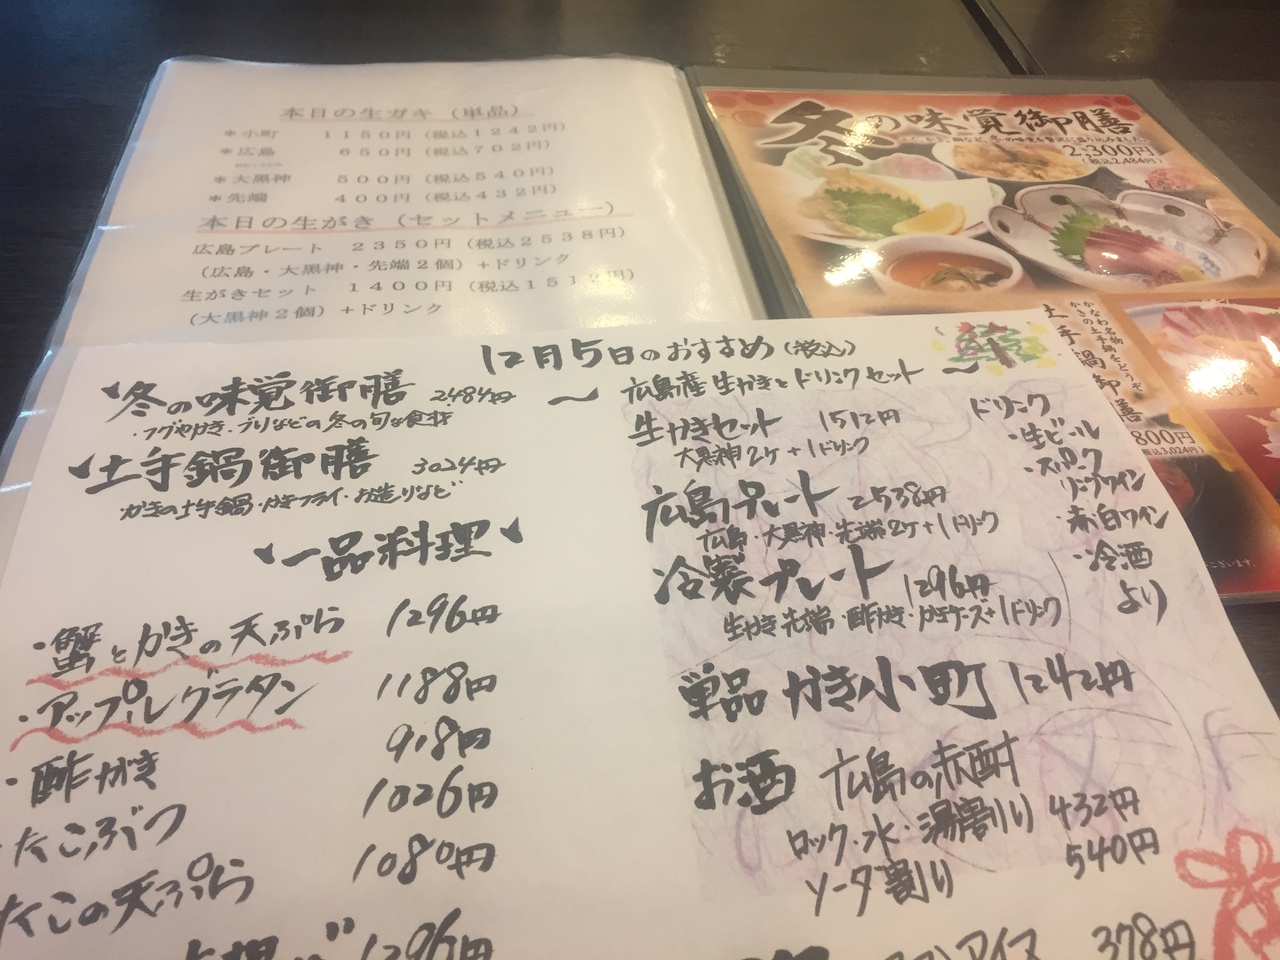 本日の生ガキ（単品）
＊小町　１１５０円（税込１２４２円）
＊広島　６５０円（税込７０２円）
＊大黒神　５００円（税込５４０円）
＊先端　４００円（税込４３２円）
本日の生がき（セットメニュー）
広島プレート　２３５０円（税込２５３８円）
（広島・大黒神・先端２個）＋ドリンク
生がきセット　１４００円（税込１５１２円）
（大黒神２個）＋ドリンク
冬の味覚御膳
2,300円
(税込2,484円)
かなわ名物
かきの土手鍋をどうぞ
土手鍋御膳
800円
税込3,024円)
12月5日のおすすめ(税込)
冬の味覚御膳 2484円
・フグやかき・ブリなどの冬の旬な食材
土手鍋御膳 3024円
かきの土手鍋・かきフライ・お造りなど
一品料理
・蟹とかきの天ぷら 1296円
・アップルグラタン 1188円
・酢がき 918円
たこぶつ 1026円
たこの天ぷら 1080円
1296円
〜広島産生かきとドリンクセット〜
生かきセット 1512円
大黒神2ケ+1ドリンク
広島プレート 2538円
広島・大黒神・先端2ケ+1ドリンク
冷製プレート 1296円
生かき先端・酢かき・かきチーズ+1ドリンク
ドリンク
・生ビール
・スパークリングワイン
・赤白ワイン
・冷酒
より
単品 かき小町 1242円
お酒 広島の赤酎
ロック・水・湯割り 432円
ソーダ割り 540円
アイス 378円